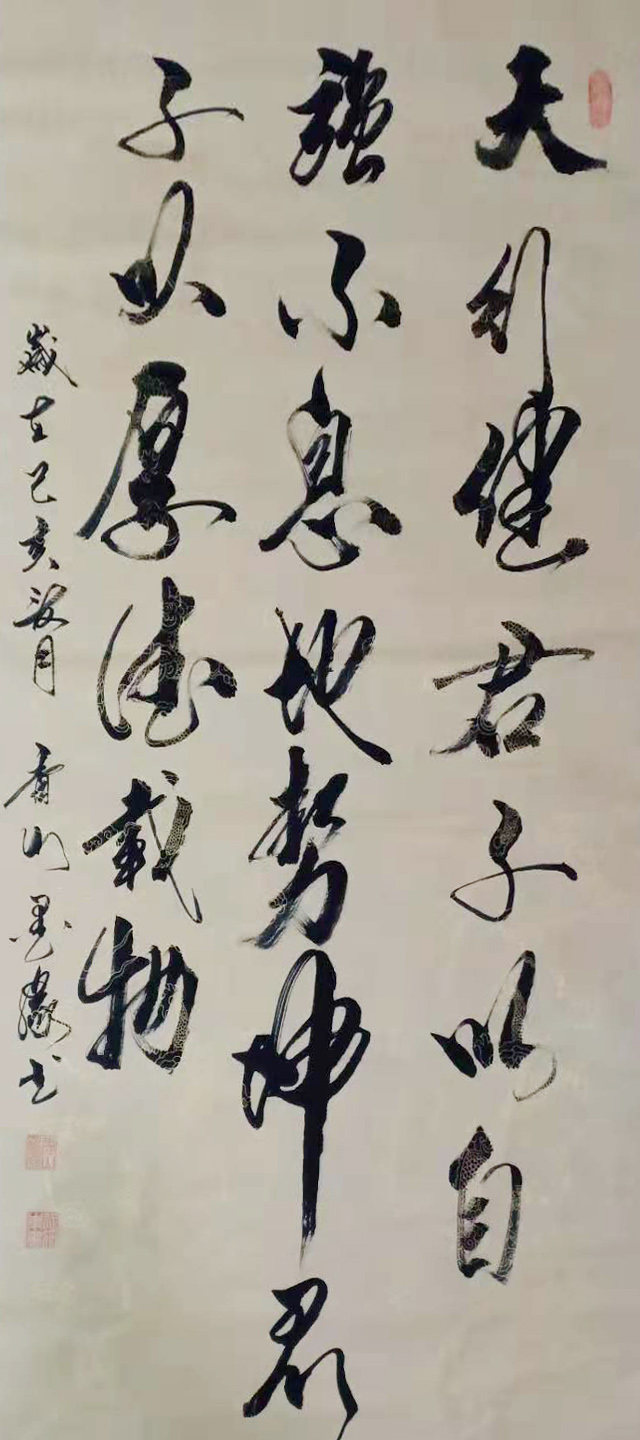 天行健君子以自
强不息地势坤君
子以厚德载物
岁在己亥 月 书